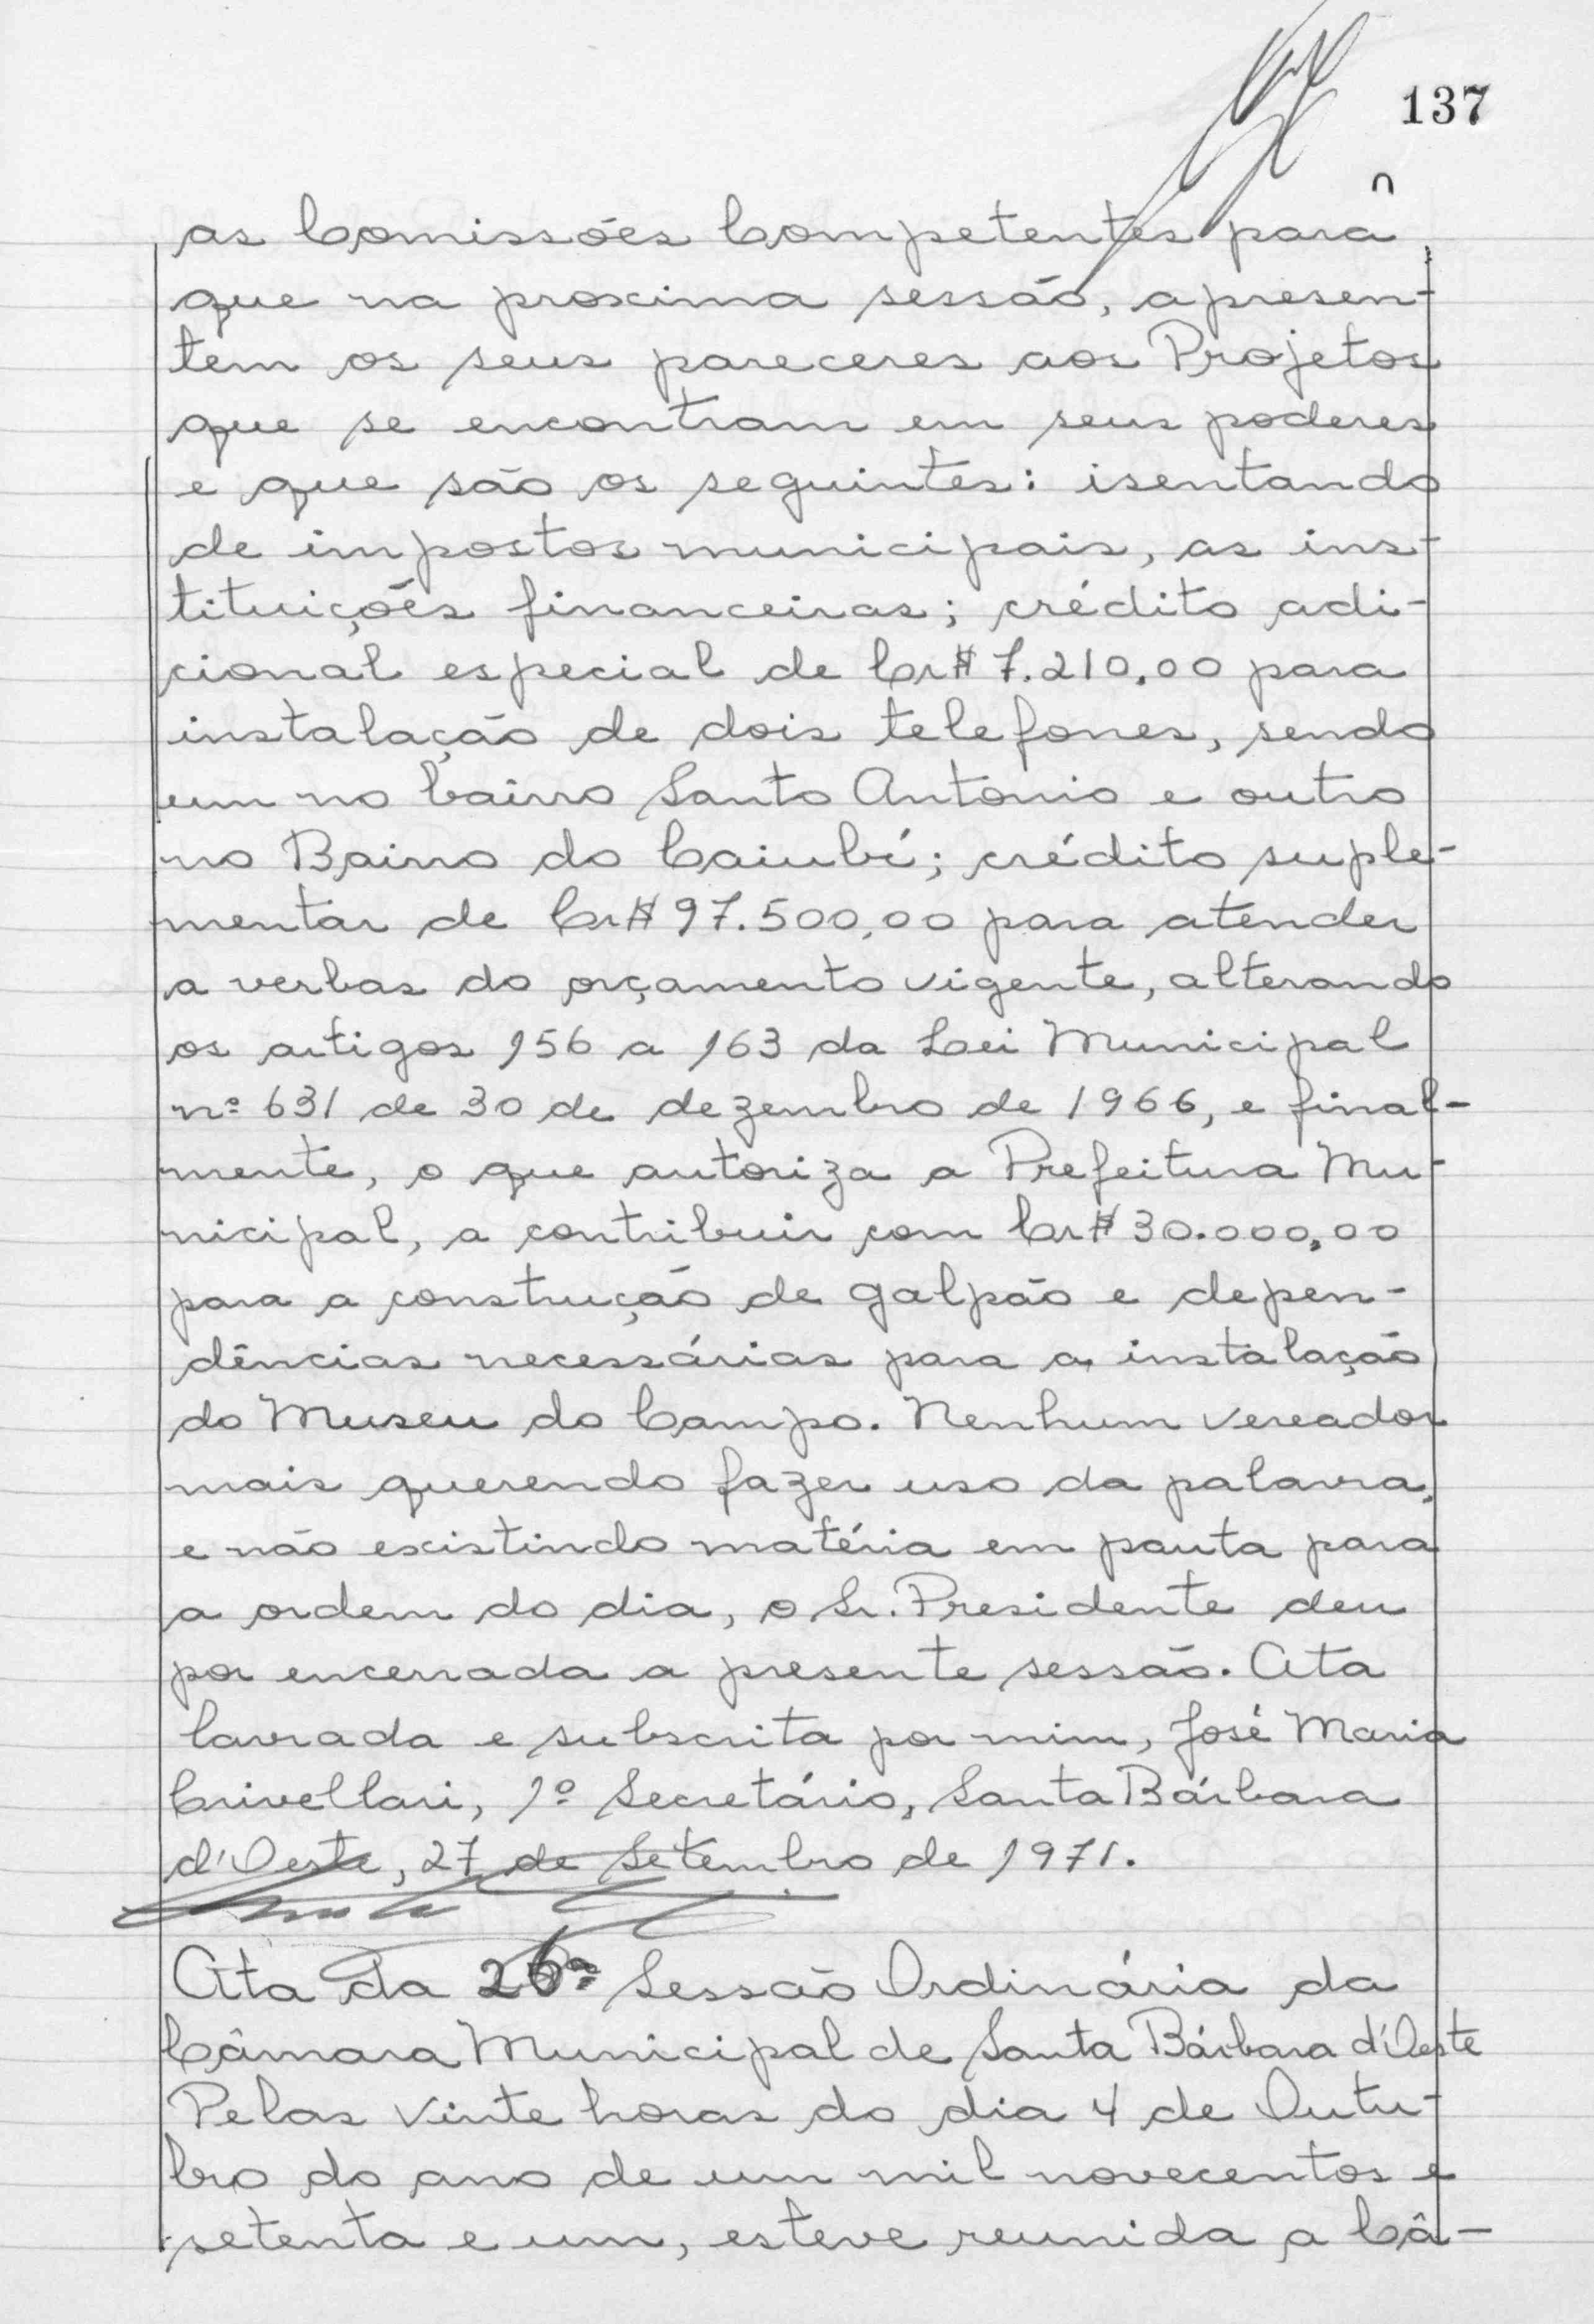 137
as Comissões Competentes para
que na proxima sessão, apresen-
tem os seus pareceres aos Projetos
que se encontram em seus poderes
e que são os seguintes: isentando
de impostos municipais, as ins-
tituições financeiras; crédito adi-
cional especial de Cr$ 7.210,00 para
instalação de dois telefones, sendo
um no bairro Santo Antonio e outro
no Bairro do Caiubí; crédito suple-
mentar de Cr$ 97.500,00 para atender
a verbas do orçamento vigente, alterando
os artigos 156 a 163 da Lei Municipal
nº 631 de 30 de dezembro de 1966, e final-
mente, o que autoriza a Prefeitura Mu-
nicipal, a contribuir com Cr$ 30.000,00
para a construção de galpão e depen-
dências necessárias para a instalação
do Museu do Campo. Nenhum vereador
mais querendo fazer uso da palavra,
e não existindo matéria em pauta para
a ordem do dia, o Sr. Presidente deu
por encerrada a presente sessão. Ata
lavrada e subscrita por mim, José Maria
Crivellari, 1º Secretário, Santa Bárbara
d'Oeste, 27 de Setembro de 1971.
Ata da 26ª Sessão Ordinária da
Câmara Municipal de Santa Bárbara d'Oeste
Pelas vinte horas do dia 4 de Outu-
bro do ano de um mil novecentos e
setenta e um, esteve reunida a Câ-